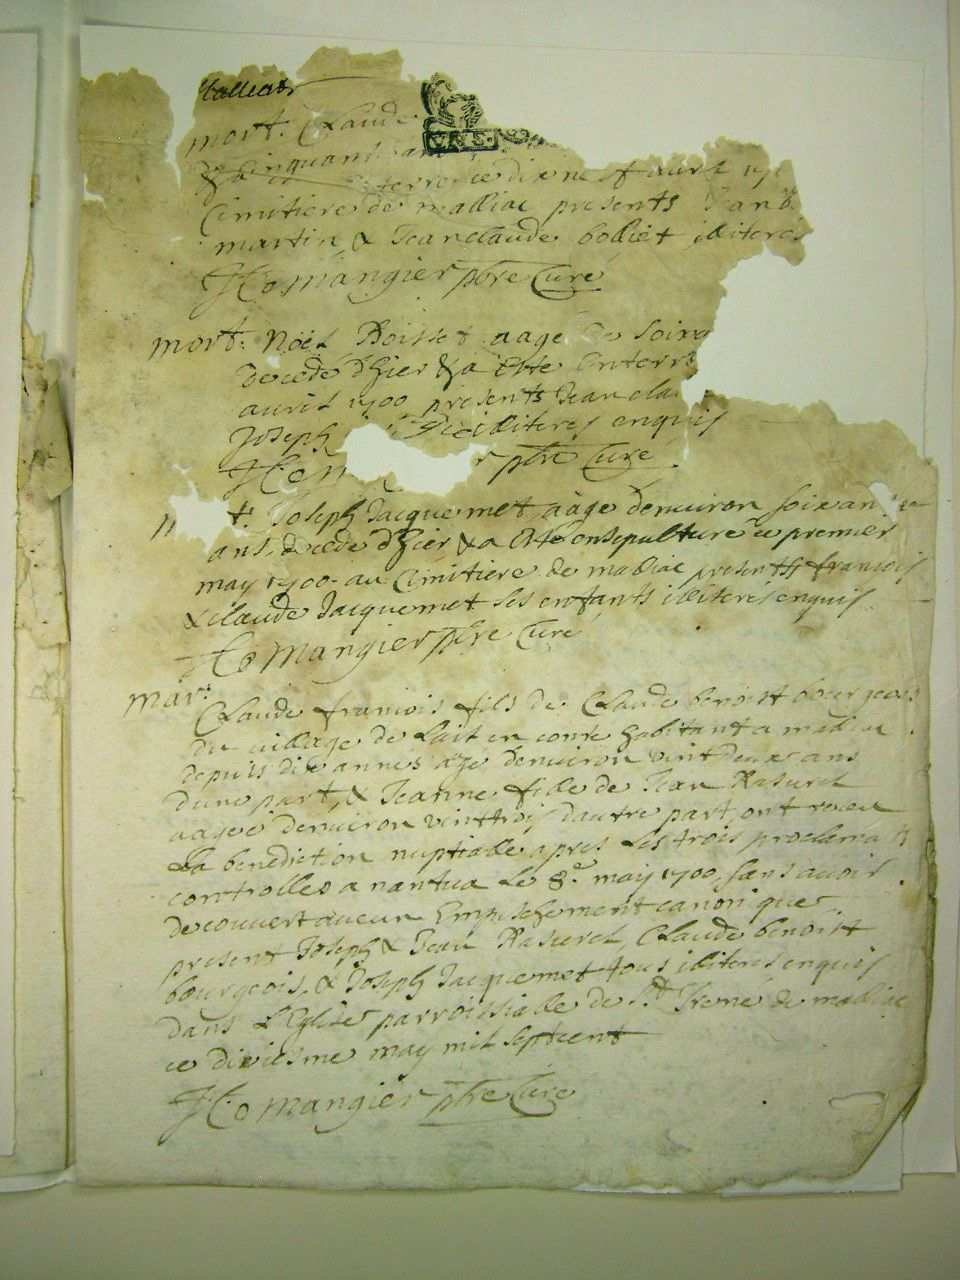 mort. Claude
& a cinquant ans
enterre ce dixneuf avril
Cimitiere de malliac presents Jean
martin & Jean claude bolliet illiteres
mangier pbre Curé
mort. Noël Boisset aagé de soixa
decedé d'hier & a esté enterré
avril 1700 presents Jean cla
Joseph illiteres enquis
pbre Curé
t. Joseph Jacquemet aagé denuiron soixante
ans decedé d'hier & a esté ensepulturé ce premier
may 1700 au Cimitiere de malliac presents francois
& claude Jacquemet ses enfants illiteres enquis
mangier pbre Curé
mar.
Claude francois fils de Claude benoist bourgeois
du village de Lait en comté habitant a malliac
depuis dix annés agé denuiron vint deux ans
dune part, & Jeanne fille de Jean Rasurel
aagée denuiron vint trois dautre part, ont receu
La benediction nuptialle apres les trois proclama
controlles a nantua le 8e. may 1700, sans avoir
decouvert aucun Empeschement canonique
present Joseph & Jean Rasurel, Claude benoist
bourgeois, & Joseph Jacquemet tous illiteres enquis
dans L'Eglise parroissialle de St. Irené de malliac
ce dixiesme may mil sept cent
mangier pbre Curé